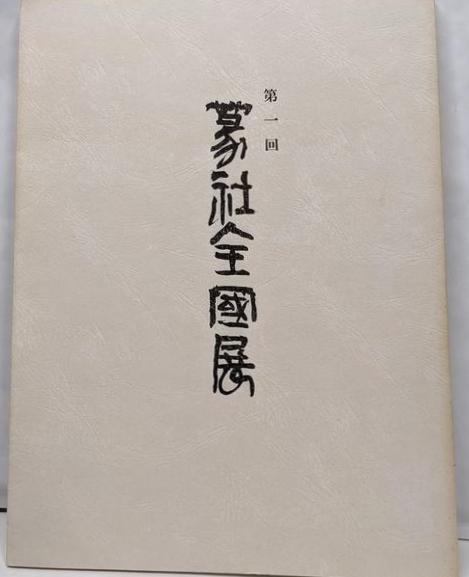 第一回
篆社全國展